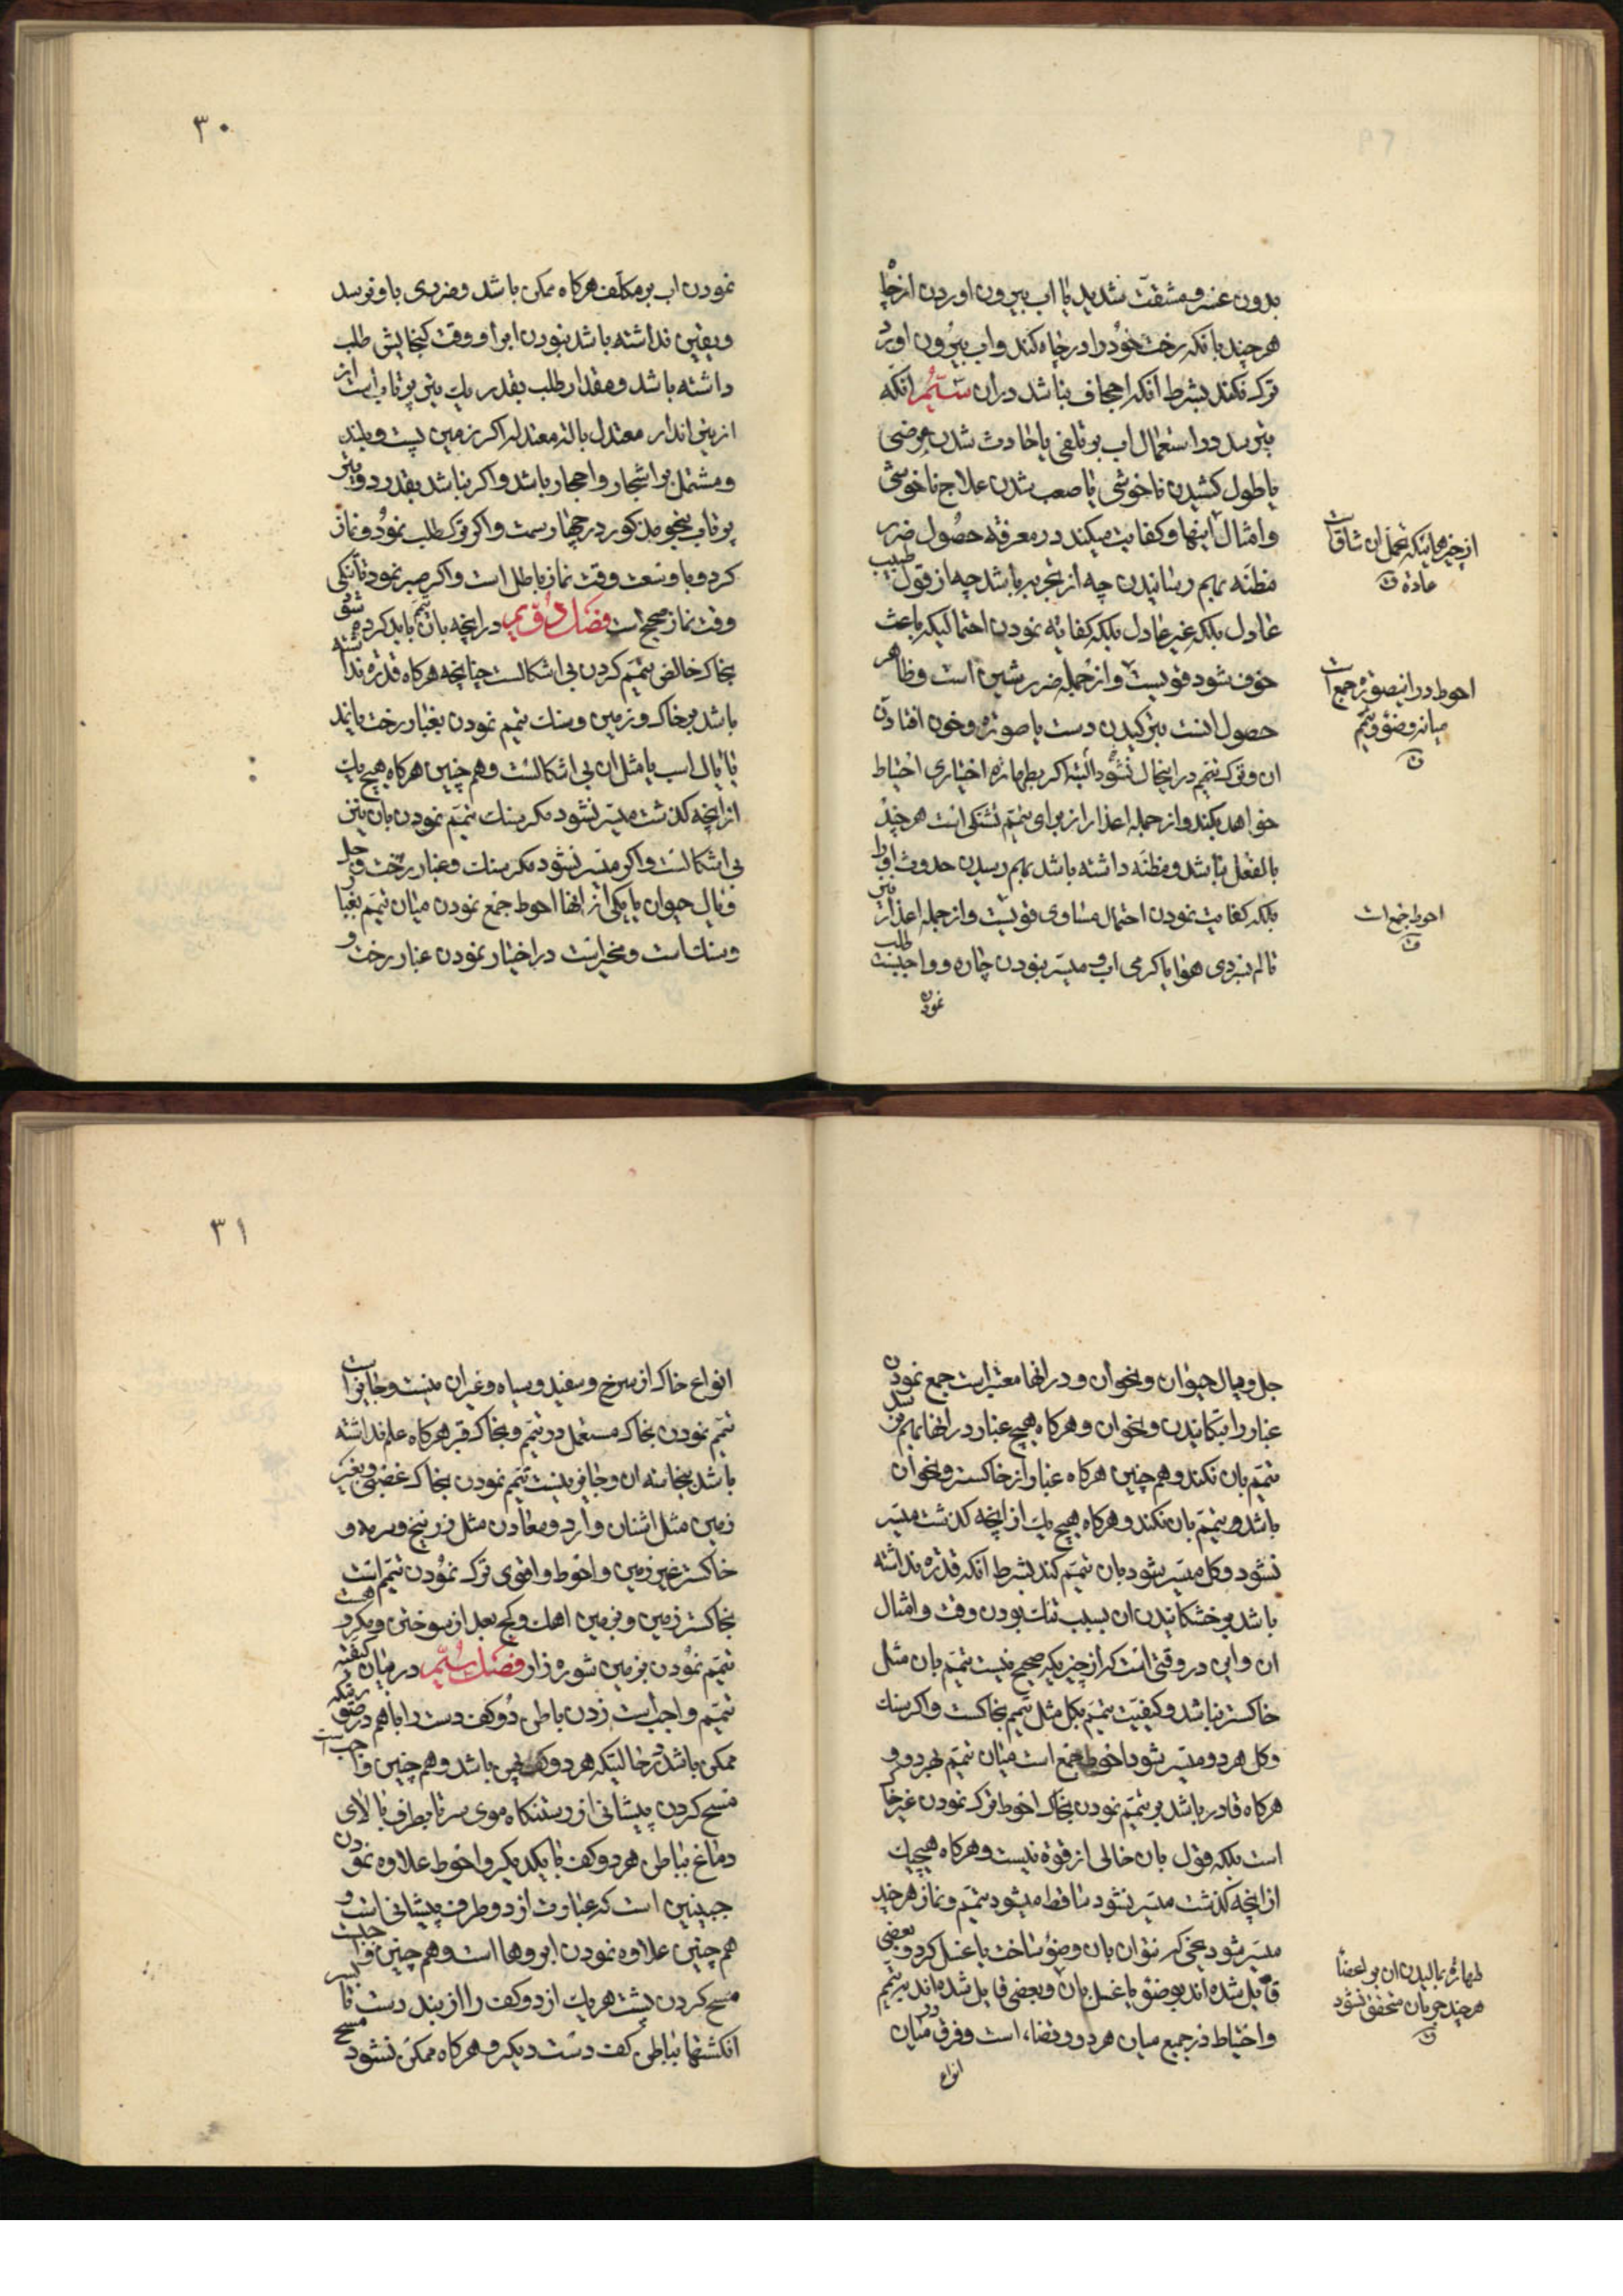 بدون عسر و مشقت شدید یا اب بیرون اوردن از چاه
هر چند بانکه رخت خود را در چاه کند و اب بیرون اورد
ترک نکند بشرط انکه اجحاف نباشد دران سیم انکه
بترسد در استعمال اب بر تلفی یا حادث شدن مرضی
یا طول کشیدن ناخوشی یا صعب شدن علاج ناخوشی
و امثال اینها و کفایت میکند در معرفة حصول ضرر
مظنه بهم رسانیدن چه از تجربه باشد چه از قول طبیب
عادل بلکه غیر عادل بلکه کفایه نمودن احتمالیکه باعث
خوف شود قویست و از جمله ضرر شین است و ظاهر
حصول انست بترکیدن دست یا صورة و خون افتادن
ان و ترک تیمم در اینحال نشود البته اکر بطهارة اختیاری احتیاط
خواهد بکند و از جمله اعذار از برای تیمم تشنکی است هر چند
بالفعل نباشد و مظنه داشته باشد بهم رسیدن حدوث او را
بلکه کفایت نمودن احتمال مساوی قویست و از جمله اعذار نیز
تالم بسردی هوا یا کرمی اب و میسر نبودن چاره و واجبست طلب
نمودن
از چیزهائیکه تحمل ان شاق است
عادة
احوط در اینصورة جمع است
میانه وضو و تیمم
احوط جمع است
۳۰
نمودن اب بر مکلف هرکاه ممکن باشد و ضرری باو نرسد
و یقین نداشته باشد بنبودن ابرا و وقت کنجایش طلب
داشته باشد و مقدار طلب بقدر یک تیر پرتاب است از
از تیر انداز معتدل بالة معتدله اکر زمین پست و بلند
و مشتمل بر اشجار و احجار باشد و اکر نباشد بقدر دو تیر
پرتاب بنحو مذکور در چهار سمت و اکر ترک طلب نمود و نماز
کرد و با وسعت وقت نماز باطل است و اکر صبر نمود تا تنکی
وقت نماز صحیح است فصل دویم در انچه بان تیمم باید کرد
بخاک خالص تیمم کردن بی اشکالست چنانچه هرکاه قدرة نداشته
باشد بر خاک و زمین و سنک تیمم نمودن بغبار رخت یا نمد
یا یال اسب یا مثل ان بی اشکالست و هم چنین هرکاه هیچ یک
از انچه کذشت میسر نشود مکر سنک تیمم نمودن بان نیز
بی اشکالست و اکر میسر نشود مکر سنک و غبار رخت و جل
و یال حیوان یا یکی از انها احوط جمع نمودن میان تیمم بغبار
و سنک است و مخیر است در اختیار نمودن غبار رخت و
جل و یال حیوان و نحو ان و در انها معتبر است جمع نمودن
غبار را بتکانیدن و نحو ان و هرکاه هیچ غبار در انها بهم نرسد
تیمم بان نکند و هم چنین هرکاه غبار از خاکستر و نحو ان
باشد و تیمم بان نکند و هرکاه هیچ یک از انچه کذشت میسر
نشود و کل میسر شود بان تیمم کند بشرط انکه قدرة نداشته
باشد بر خشکانیدن ان بسبب تنک بودن وقت و امثال
ان و این در وقتی است که از چیزیکه صحیح نیست تیمم بان مثل
خاکستر نباشد و کیفیت تیمم بکل مثل تیمم بخاکست و اکر سنک
و کل هر دو میسر شود احوط جمع است میان تیمم بهر دو و
هرکاه قادر باشد بر تیمم نمودن بخاک احوط ترک نمودن غیر خاک
است بلکه قول بان خالی از قوة نیست و هرکاه هیچیک
از انچه کذشت میسر نشود ساقط میشود تیمم و نماز هر چند
میسر شود یخی که نتوان بان وضو ساخت یا غسل کرد و بعضی
قایل شده اند بوضو یا غسل بان و بعضی قایل شده اند بر تیمم
و احتیاط در جمیع میان هر دو و قضاء است و فرق در میان
انواع
طهارة بمالیدن ان بر اعضا
هر چند جریان متحقق نشود
۳۱
انواع خاک از سرخ و سفید و سیاه و غیر ان نیست و جایز است
تیمم نمودن بخاک مستعمل در تیمم و بخاک قبر هرکاه علم نداشته
باشد بنجاسة ان و جایز نیست تیمم نمودن بخاک غصبی و بغیر
زمین مثل اشنان و ارد و معادن مثل زرنیخ و سرمه و
خاکستر غیر زمین و احوط و اقوی ترک نمودن تیمم است
بخاکستر زمین و بزمین اهک و کچ بعد از سوختن و مکروهست
تیمم نمودن بزمین شوره زار فصل سیم در میان کیفیة
تیمم و واجب است زدن باطن دو کف دست را باهم در صورتیکه
ممکن باشد در حالتیکه هر دو کف پهن باشد و هم چنین واجب است
مسح کردن پیشانی از رستنکاه موی سر تا بطرف بالای
دماغ بباطن هر دو کف با یکدیکر و احوط علاوه نمودن
جبینین است که عبارت از دو طرف پیشانی است و
هم چنین علاوه نمودن ابروها است و هم چنین واجبست
مسح کردن پشت هر یک از دو کف را از بند دست تا سر
انکشتها بباطن کف دست دیکر و هرکاه ممکن نشود مسح